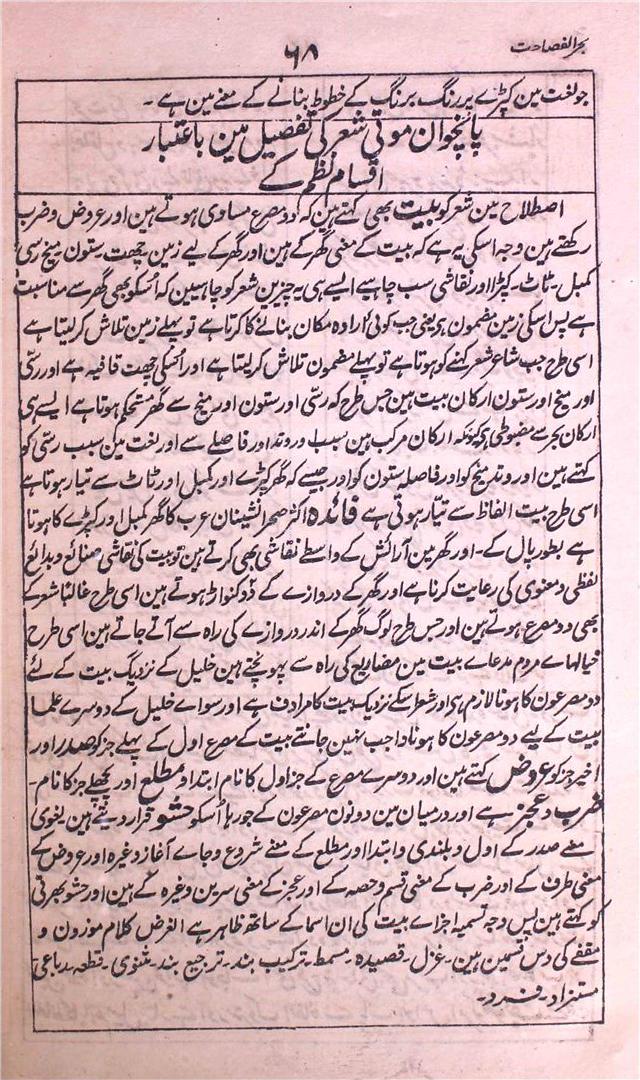 بحر الفصاحت
۶۸
جو لغت مین کپڑے پر رنگ برنگ کے خطوط بنانے کے معنے مین ہے ۔
پانچوان موتی شعر کی تفصیل مین باعتبار
اقسام نظم کے
اصطلاح مین شعر کو بیت بھی کہتے ہین کہ دو مصرع مساوی ہوتے ہین اور عروض و ضرب
رکھتے ہین وجہ اسکی یہ ہے کہ بیت کے معنی گھر کے ہین اور گھر کے لیے زمین ۔ چھت ۔ ستون میخ رسی
کمبل ۔ ٹاٹ ۔ کپڑا اور نقاشی سب چاہیے ایسے ہی یہ چیزین شعر کو چاہیین کہ اُسکو بھی گھر سے مناسبت
ہے پس اسکی زمین مضمون ہی یعنی جب کوئی ارادہ مکان بنانے کا کرتا ہے تو پہلے زمین تلاش کر لیتا ہے
اسی طرح جب شاعر شعر کہنے کو ہوتا ہے تو پہلے مضمون تلاش کر لیتا ہے اور اُسکی چھت قافیہ ہے اور رسّی
اور میخ اور ستون ارکان بیت ہین جس طرح کہ رسّی اور ستون اور میخ سے گھر مستحکم ہوتا ہے ایسے ہی
ارکان بحر سے مضبوطی ہی کیونکہ ارکان مرکب ہین سبب و وتد اور فاصلے سے اور لغت مین سبب رسّی کو
کہتے ہین اور وتد میخ کو اور فاصلہ ستون کو اور جیسے کہ گھر کپڑے اور کمبل اور ٹاٹ سے تیار ہوتا ہے
اسی طرح بیت الفاظ سے تیّار ہوتی ہے فائدہ اکثر صحرا نشینان عرب کا گھر کمبل اور کپڑے کا ہوتا
ہے بطور پال کے ۔ اور گھر مین آرائش کے واسطے نقاشی بھی کرتے ہین تو بیت کی نقاشی صنائع و بدائع
لفظی و معنوی کی رعایت کرنا ہے اور گھر کے دروازے کے دو کنواڑ ہوتے ہین اسی طرح غالبًا شعر کے
بھی دو مصرع ہوتے ہین اور جس طرح لوگ گھر کے اندر دروازے کی راہ سے آتے جاتے ہین اسی طرح
خیالہاے مردم مدعاے بیت مین مصاریع کی راہ سے پہونچتے ہین خلیل کے نزدیک بیت کے لئے
دو مصرعون کا ہونا لازم ہی اور شعر اسکے نزدیک بیت کا مرادف ہے اور سواے خلیل کے دوسرے علما
بیت کے لیے دو مصرعون کا ہونا واجب نہین جانتے بیت کے مصرع اول کے پہلے جز کو صدر اور
اخیر جز کو عروض کہتے ہین اور دوسرے مصرع کے جز اول کا نام ابتدا و مطلع اور پچھلے جز کا نام ۔
ضرب و عجز ہے اور درمیان مین دونون مصرعون کے جو رہا اُسکو حشو قرار دیتے ہین لغوی
معنے صدر کے اول و بلندی و ابتدا اور مطلع کے معنے شروع و جاے آغاز وغیرہ اور عروض کے
معنی طرف کے اور ضرب کے معنی قسم و حصہ کے اور عجز کے معنی سرین وغیرہ کے ہین اور حشو بھرتی
کو کہتے ہین پس وجہ تسمیہ اجزاے بیت کی ان اسما کے ساتھ ظاہر ہے الغرض کلام موزون و
مقفے کی دس قسمین ہین ۔ غزل ۔ قصیدہ ۔ مسمط ۔ ترکیب بند ۔ ترجیع بند ۔ مثنوی ۔ قطعہ ۔ رباعی
مستزاد ۔ فرد ۔